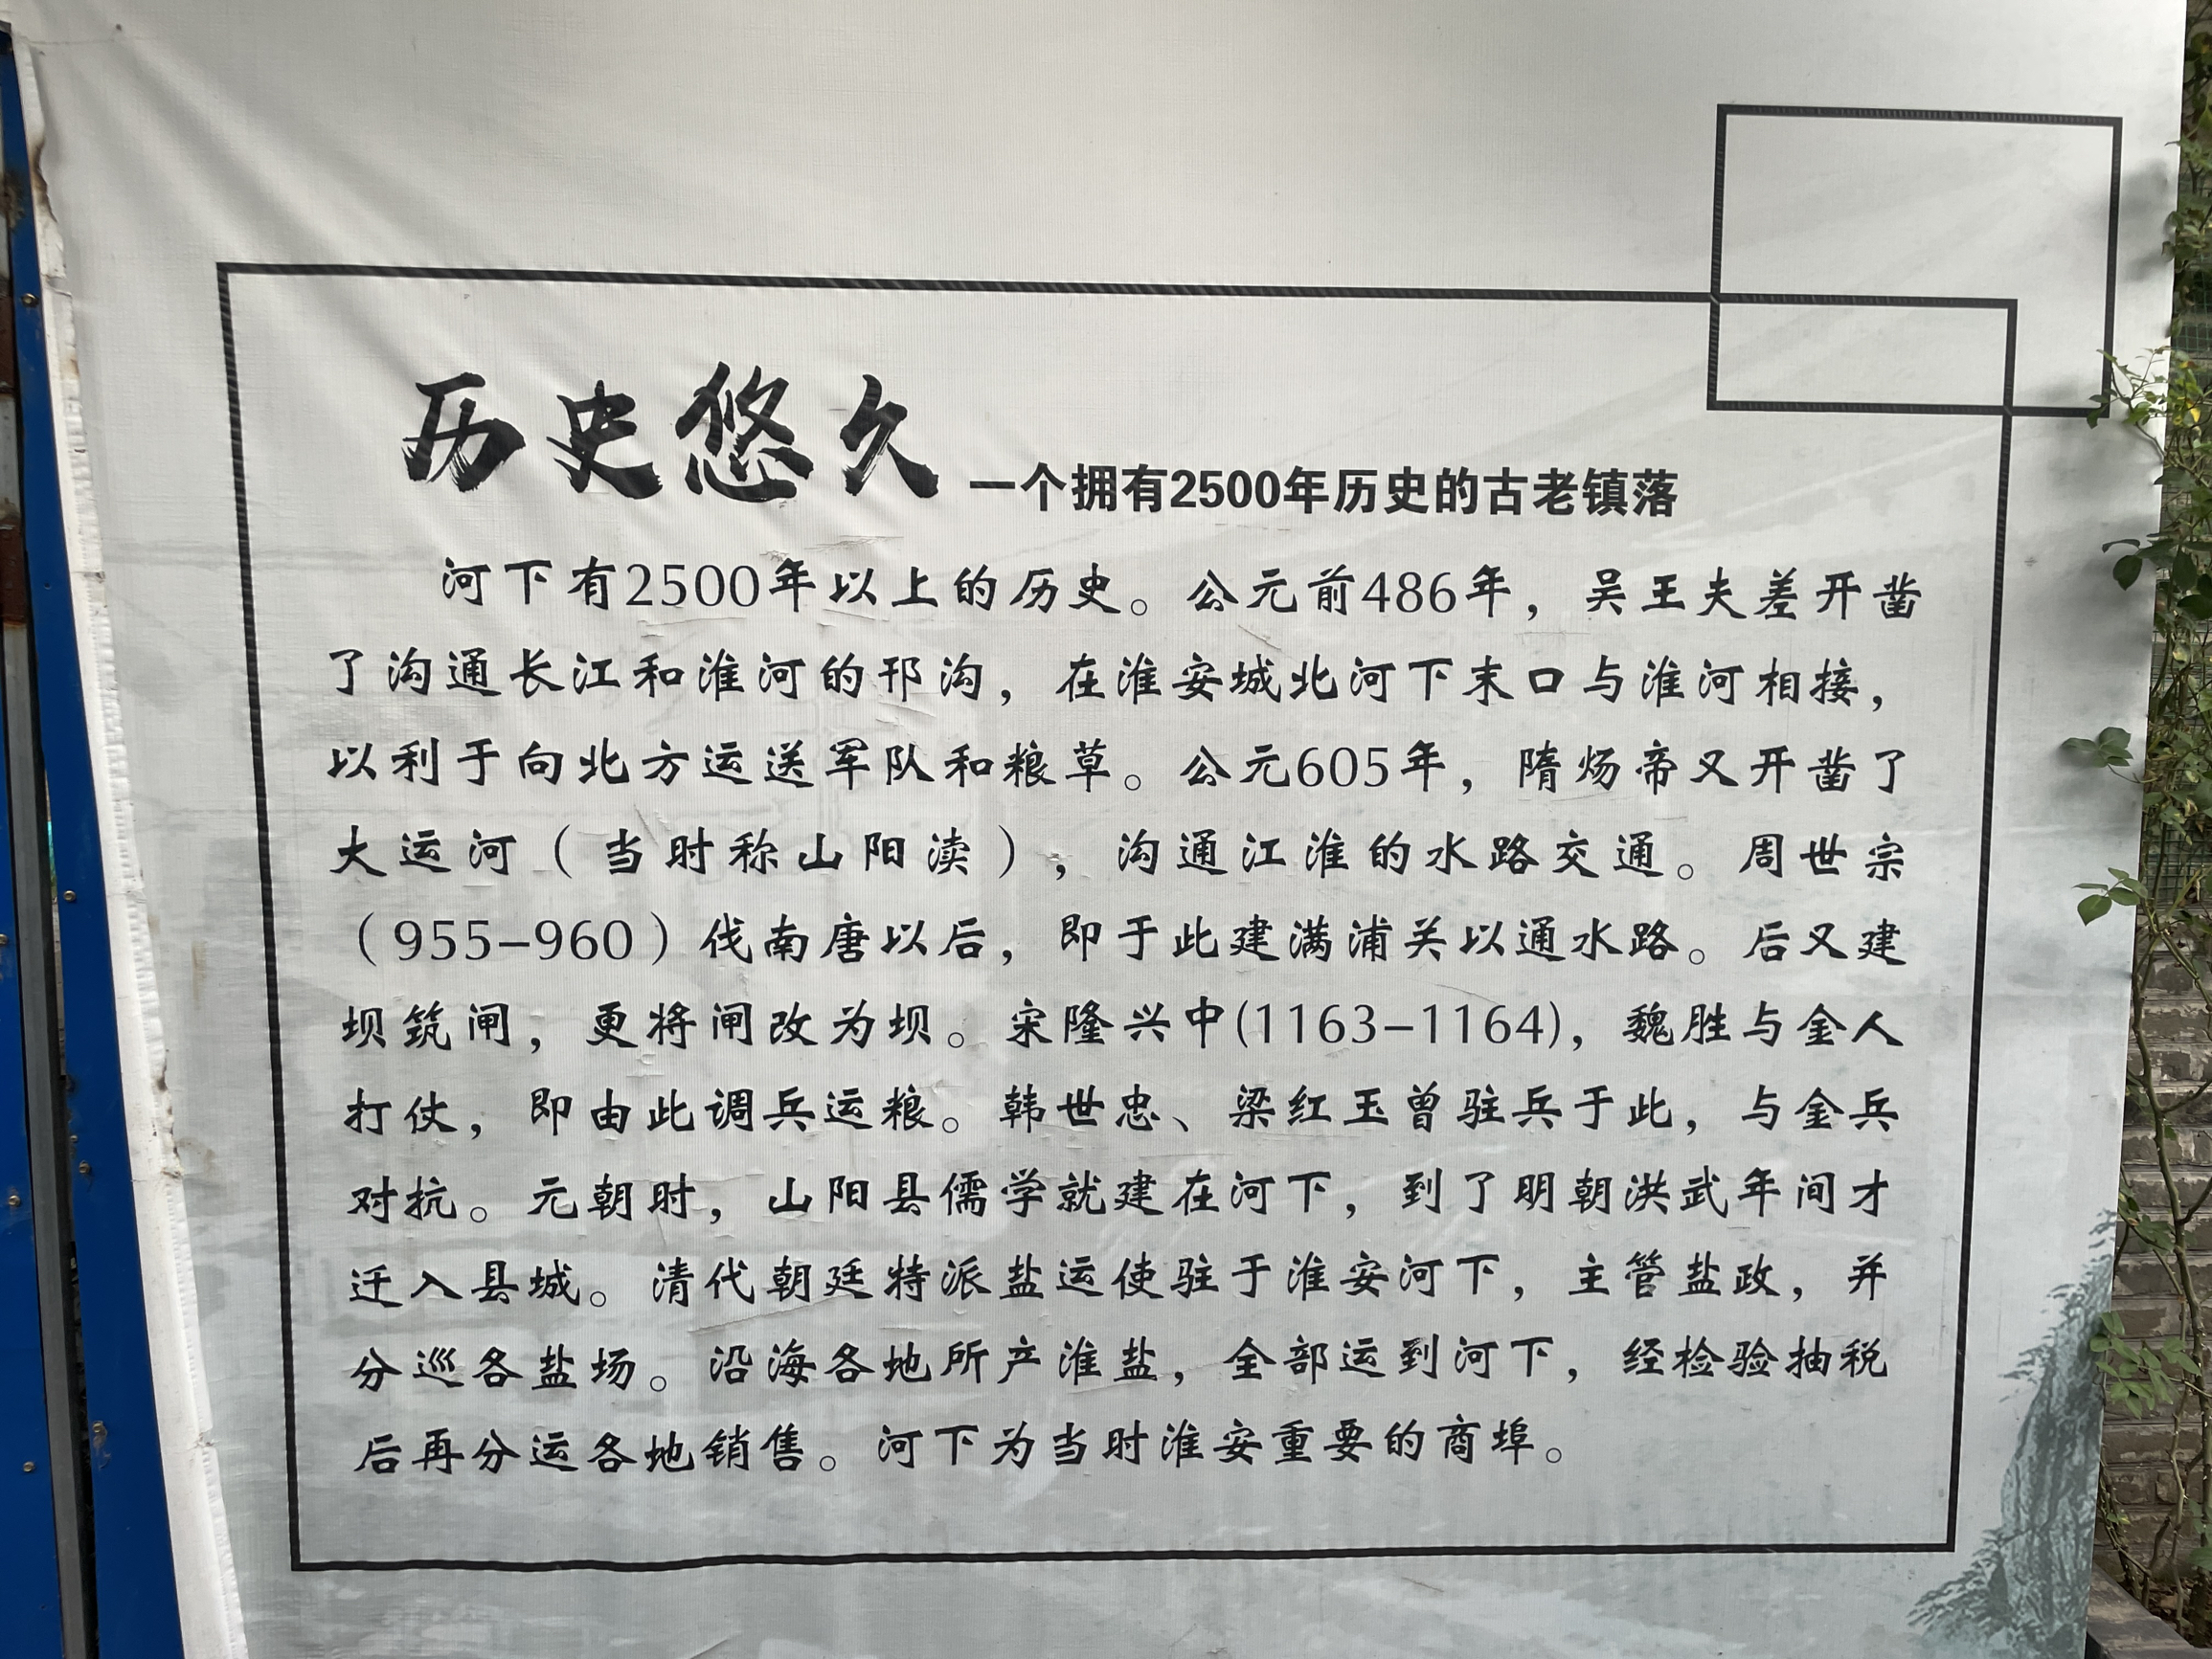 历史悠久 一个拥有2500年历史的古老镇落
河下有2500年以上的历史。公元前486年，吴王夫差开凿
了沟通长江和淮河的邗沟，在淮安城北河下末口与淮河相接，
以利于向北方运送军队和粮草。公元605年，隋炀帝又开凿了
大运河（当时称山阳渎），沟通江淮的水路交通。周世宗
（955-960）伐南唐以后，即于此建满浦关以通水路。后又建
坝筑闸，更将闸改为坝。宋隆兴中(1163-1164)，魏胜与金人
打仗，即由此调兵运粮。韩世忠、梁红玉曾驻兵于此，与金兵
对抗。元朝时，山阳县儒学就建在河下，到了明朝洪武年间才
迁入县城。清代朝廷特派盐运使驻于淮安河下，主管盐政，并
分巡各盐场。沿海各地所产淮盐，全部运到河下，经检验抽税
后再分运各地销售。河下为当时淮安重要的商埠。